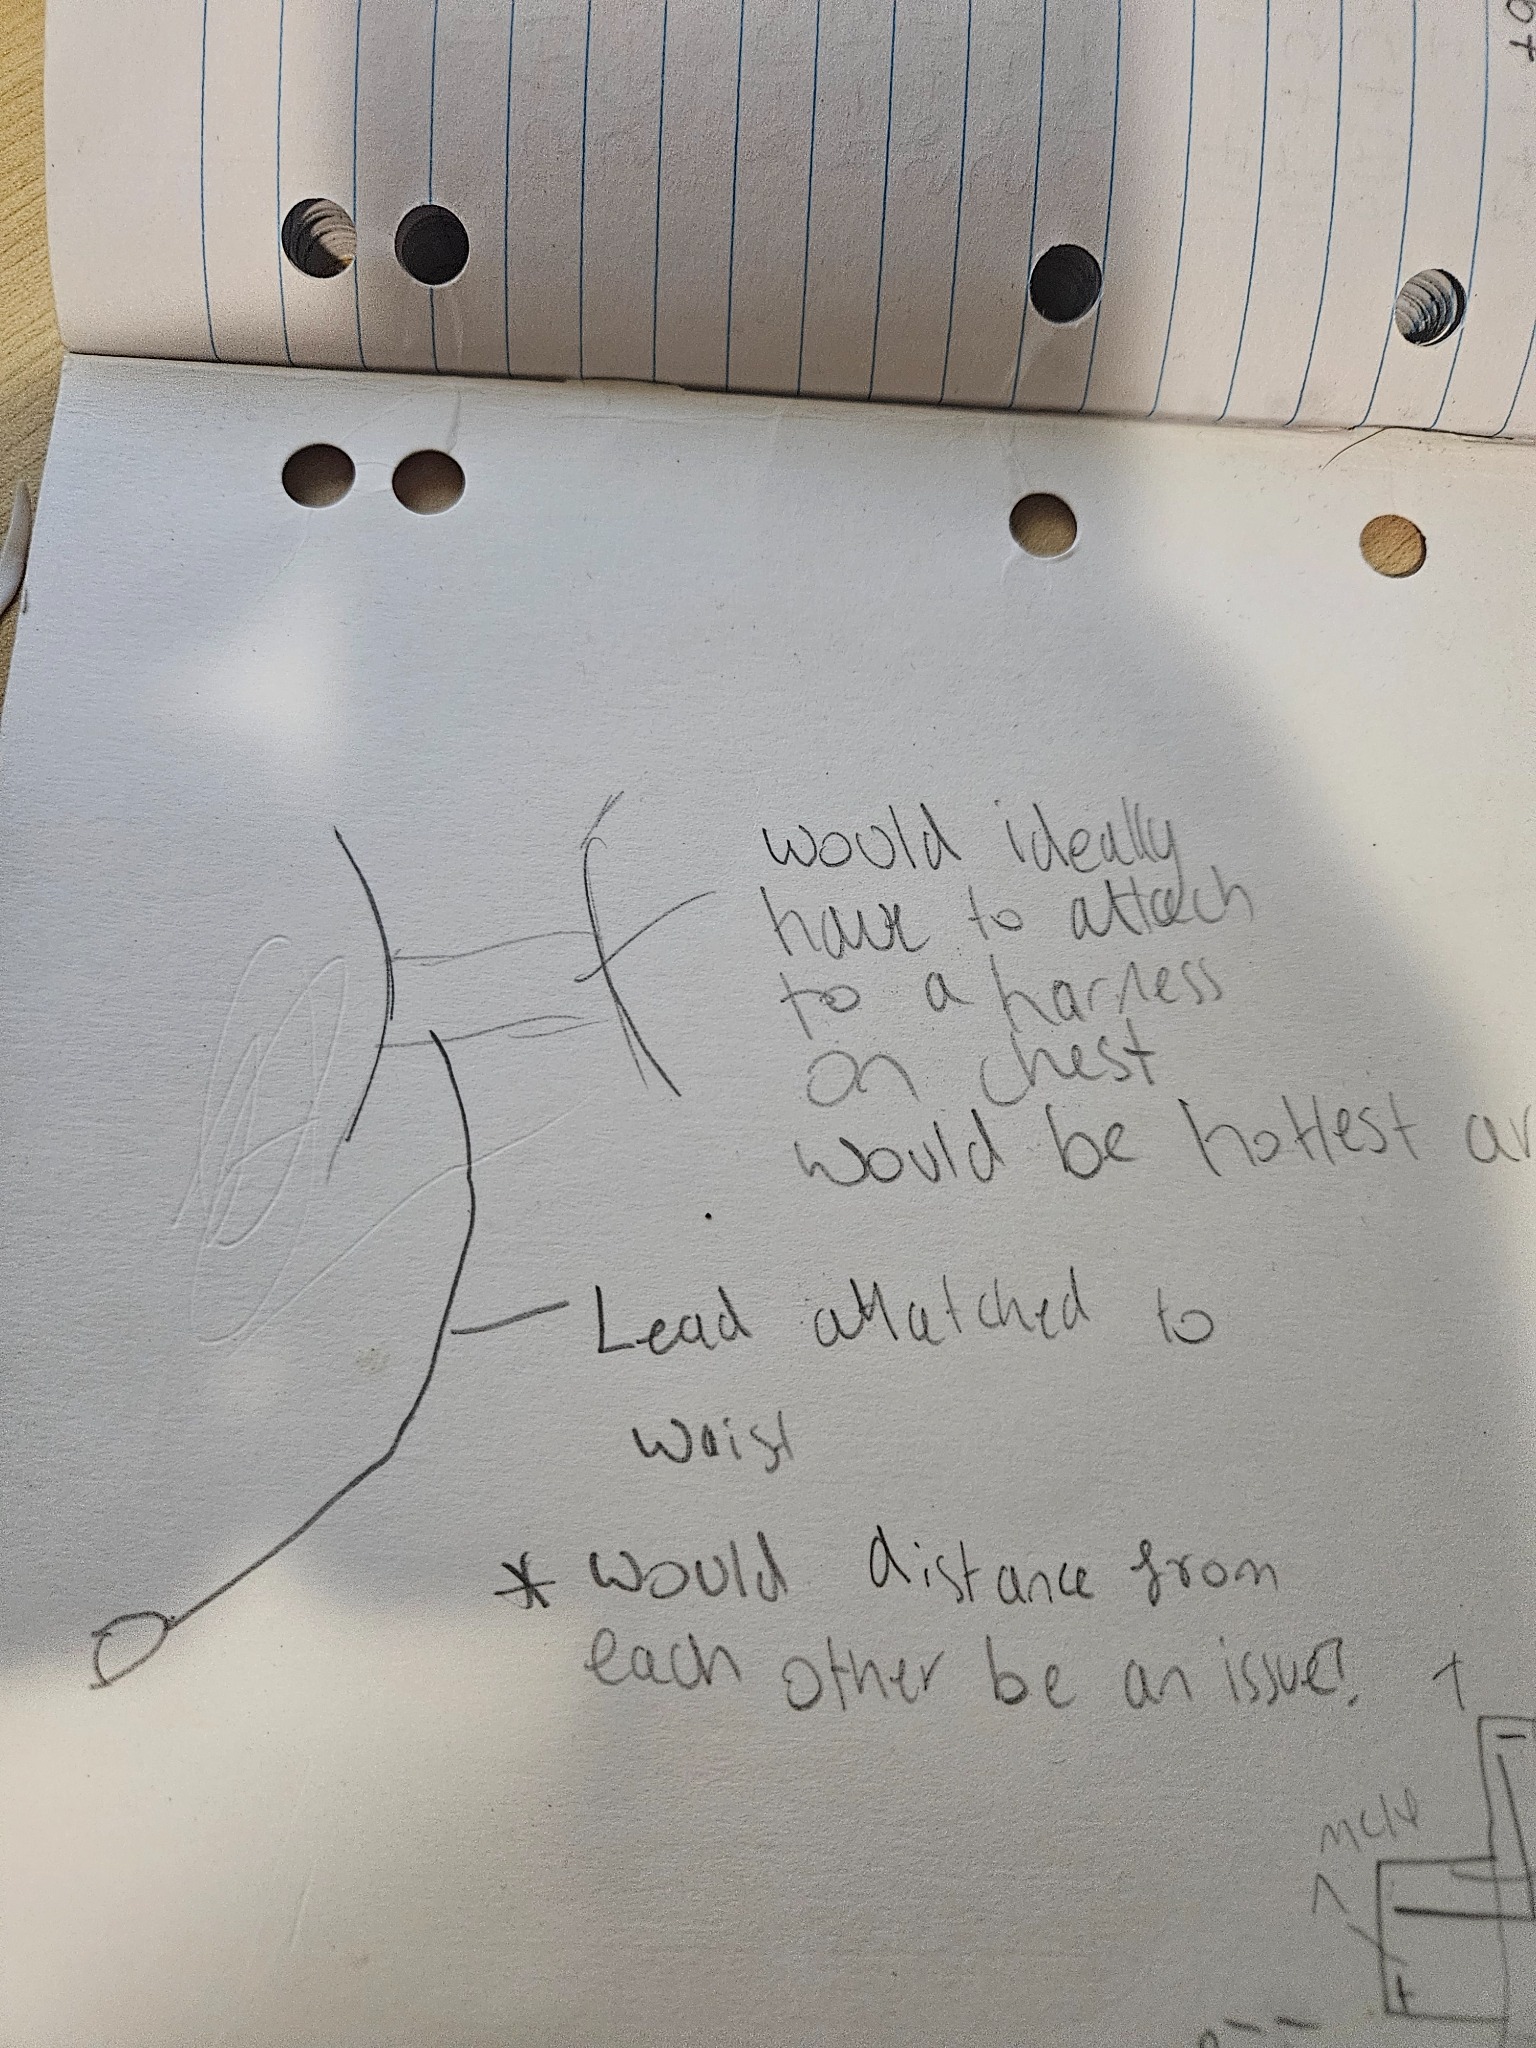 would ideally
have to attach
to a harness
on chest
would be hottest
Lead attatched to
waist
* would distance from
each other be an issue?
+
-
+